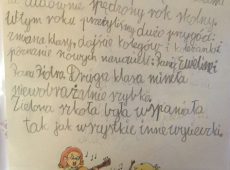 za cudownie spędzony rok szkolny.
W tym roku przeżyliśmy dużo przygód:
zmiana klasy, dojście kolegów i koleżanki
poznanie nowych nauczycieli: Panią Ewelinę i
Pana Piotra. Druga klasa minęła
niewobrażalnie szybko.
Zielona szkoła była wspaniała
tak jak wszystkie inne wycieczki.